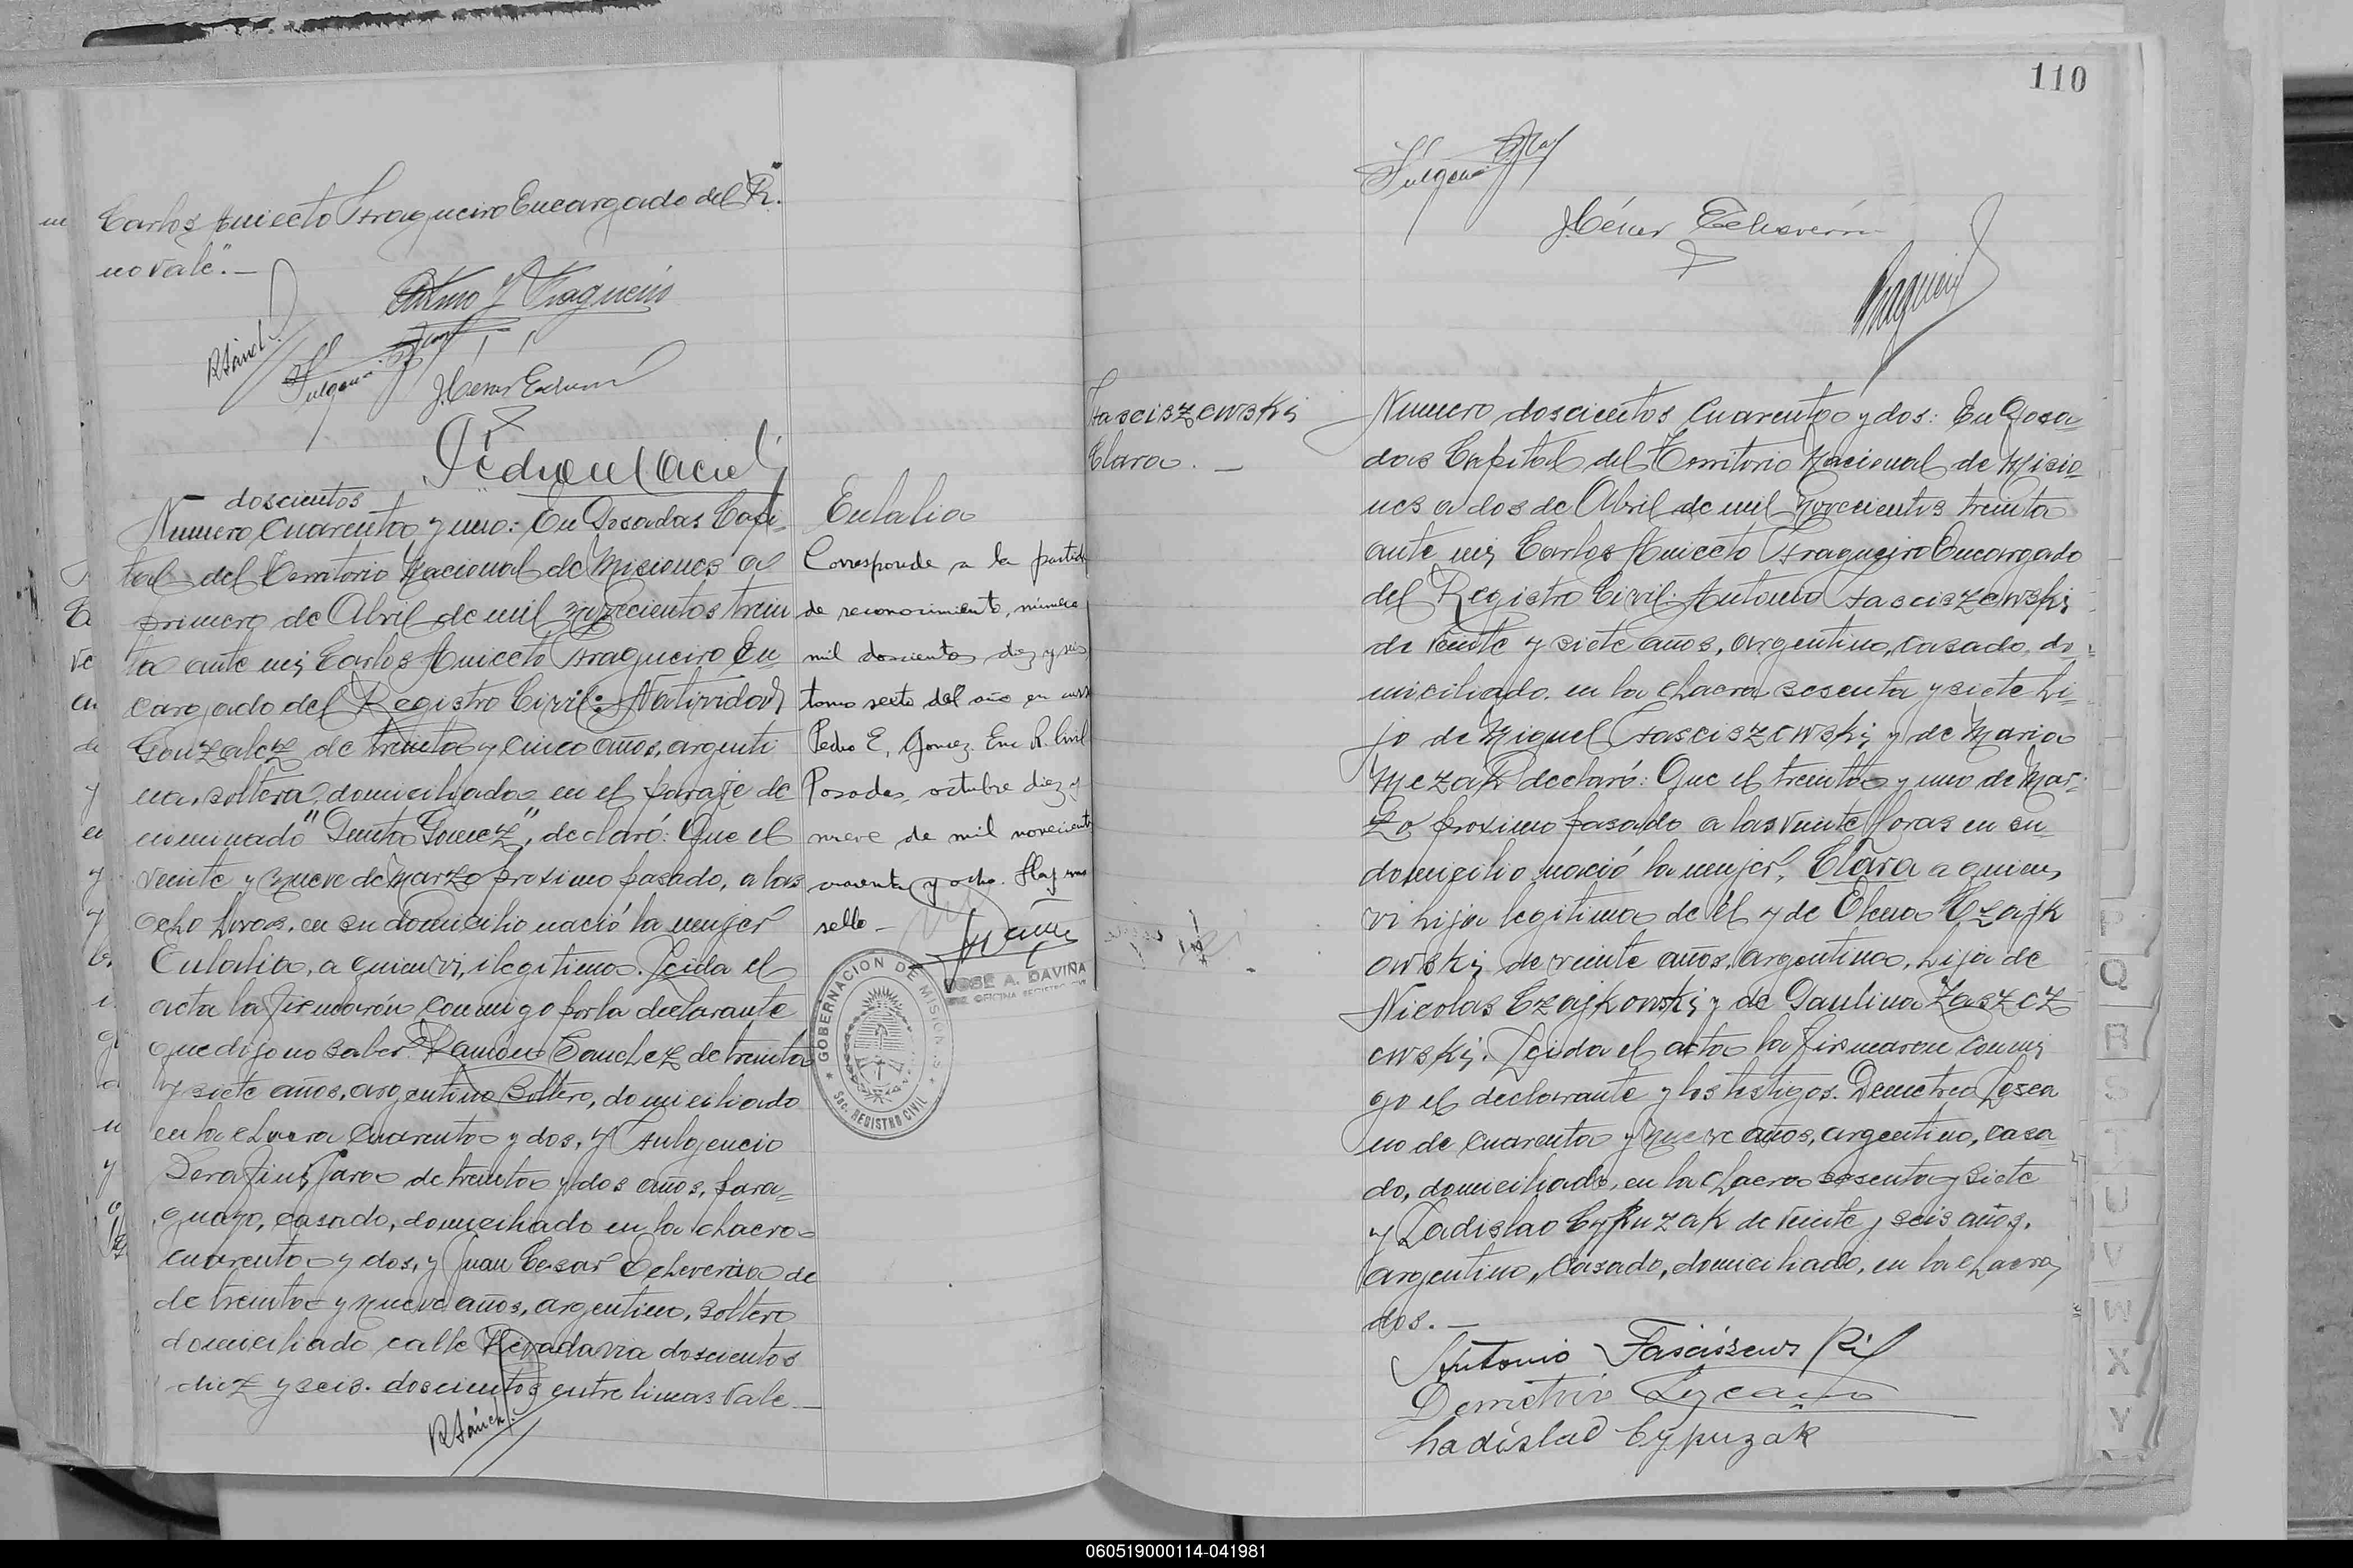 Carlos Aniceto Fragueiro Encargado del R.
no vale".—
Arturo J Fragueiro
R Sánch
Fulgencio
J. César Echeverría
Pedro Maciel
doscientos
Numero cuarenta y uno: En Posadas Capi-
tal del Territorio Nacional de Misiones a
primero de Abril de mil novecientos trein
ta ante mi, Carlos Aniceto Fragueiro En
cargado del Registro Civil: Natividad
Gonzalez de treinta y cinco años, argenti
na, soltera, domiciliada en el paraje de
nominado "Punta Gomez", declaró: Que el
veinte y nueve de Marzo proximo pasado, a las
ocho horas, en su domicilio nació la mujer
Eulalia, a quien vi, ilegitima. Leida el
acta la firmarón conmigo por la declarante
que dijo no saber Ramón Sanchez de treinta
y siete años, argentino soltero, domiciliado
en la chacra cuarenta y dos, y Fulgencio
Serafini, Jara de treinta y dos años, para-
guayo, casado, domiciliado en la chacra
cuarenta y dos, y Juan Cesar Echeverria de
de treinta y nueve años, argentino, soltero
domiciliado calle Rivadavia doscientos
diez y seis. doscientos entre lineas vale—
R Sánch
Eulalia
Corresponde a la partida
de reconocimiento, número
mil doscientos diez y seis
tomo sexto del año en curso
Pedro E. Gomez Enc R. Civil
Posadas, octubre diez y
nueve de mil novecientos
cuarenta y ocho. Hay un
sello —
GOBERNACION DE MISIONES
Sec. REGISTRO CIVIL
JOSE A. DAVIÑA
OFICINA REGISTRO CIVIL
110
Fulgencio
J. César Echeverría
Fragueiro
Fasciszewski
Clara. —
Numero doscientos cuarenta y dos: En Posa-
das Capital del Territorio Nacional de Misio-
nes a dos de Abril de mil novecientos treinta
ante mi, Carlos Aniceto Fragueiro Encargado
del Registro Civil: Antonio Fasciszewski
de veinte y siete años, argentino, casado, do-
miciliado en la chacra sesenta y siete hi-
jo de Miguel Fasciszewski y de Maria
Mezak declaró: Que el treinta y uno de Mar-
zo proximo pasado a las veinte horas en su
domicilio nació la mujer, Clara a quien
vi hija legitima de él y de Elena Czajk
owski, de veinte años, argentina, hija de
Nicolas Czajkowski y de Paulina Zaszcz
ewski. Leida el acta la firmaron conmi
go el declarante y los testigos. Demetrio Lesca
no de cuarenta y nueve años, argentino, casa
do, domiciliado, en la chacra sesenta y siete
y Ladislao Cypruzak de veinte y seis años,
argentino, casado, domiciliado, en la chacra
dos. —
Antonio Fasciszewski
Demetrio Lezcano
Ladislao Cypuzak
P
Q
R
S
T
U
V
W
X
Y
060519000114-041981